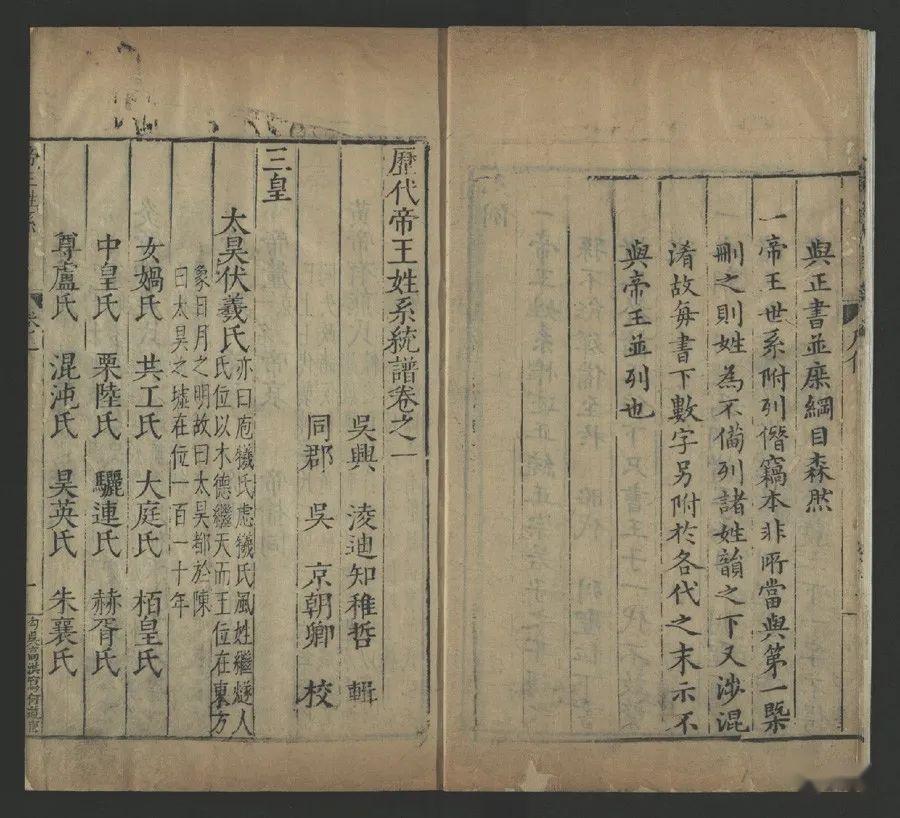 與正書並麇綱目森然
一帝王世系附列僭竊本非所當與第一槩
刪之則姓為不備列諸姓韻之下又涉混
淆故每書下數字另附於各代之末示不
與帝王並列也
歷代帝王姓系統譜卷之一
吳興 淩迪知稚哲 輯
同郡 吳 京朝卿 校
三皇
太昊伏羲氏
亦曰庖犧氏虙犧氏風姓繼燧人
氏位以木德繼天而王位在東方
象日月之明故曰太昊都於陳
曰太昊之墟在位一百一十年
女媧氏 共工氏 大庭氏 栢皇氏
中皇氏 栗陸氏 驪連氏 赫胥氏
尊盧氏 混沌氏 昊英氏 朱襄氏